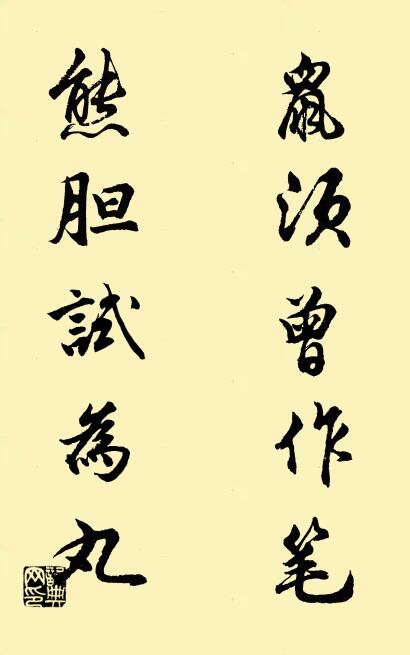 鼠须曾作笔
熊胆試為丸